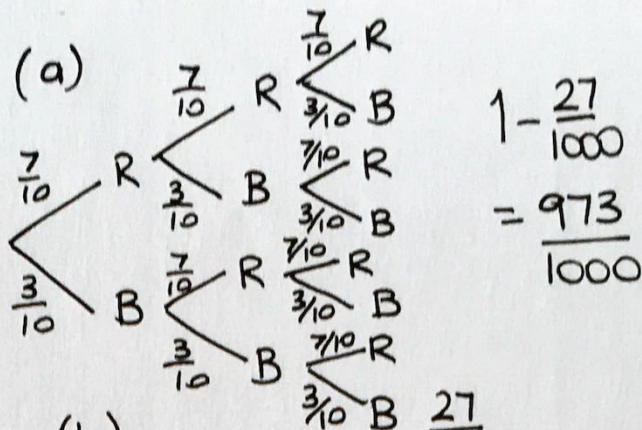 (a)
7/10 R
7/10 R
7/10 R
3/10 B
3/10 B
7/10 R
3/10 B
3/10 B
7/10 R
7/10 R
3/10 B
3/10 B
7/10 R
3/10 B 27
1 - 27/1000
= 973/1000